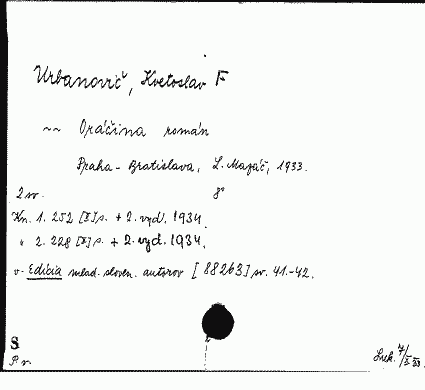 Urbanovič, Kvetoslav F
~~ Oráčina román
Praha - Bratislava, L. Mazáč, 1933.
2 sv. 8°
Kn. 1. 252 [I] s. + 2. vyd. 1934.
" 2. 228 [I] s. + 2. vyd. 1934.
v. Edícia mlad. sloven. autorov [88263] sv. 41.-42.
S
P. v.